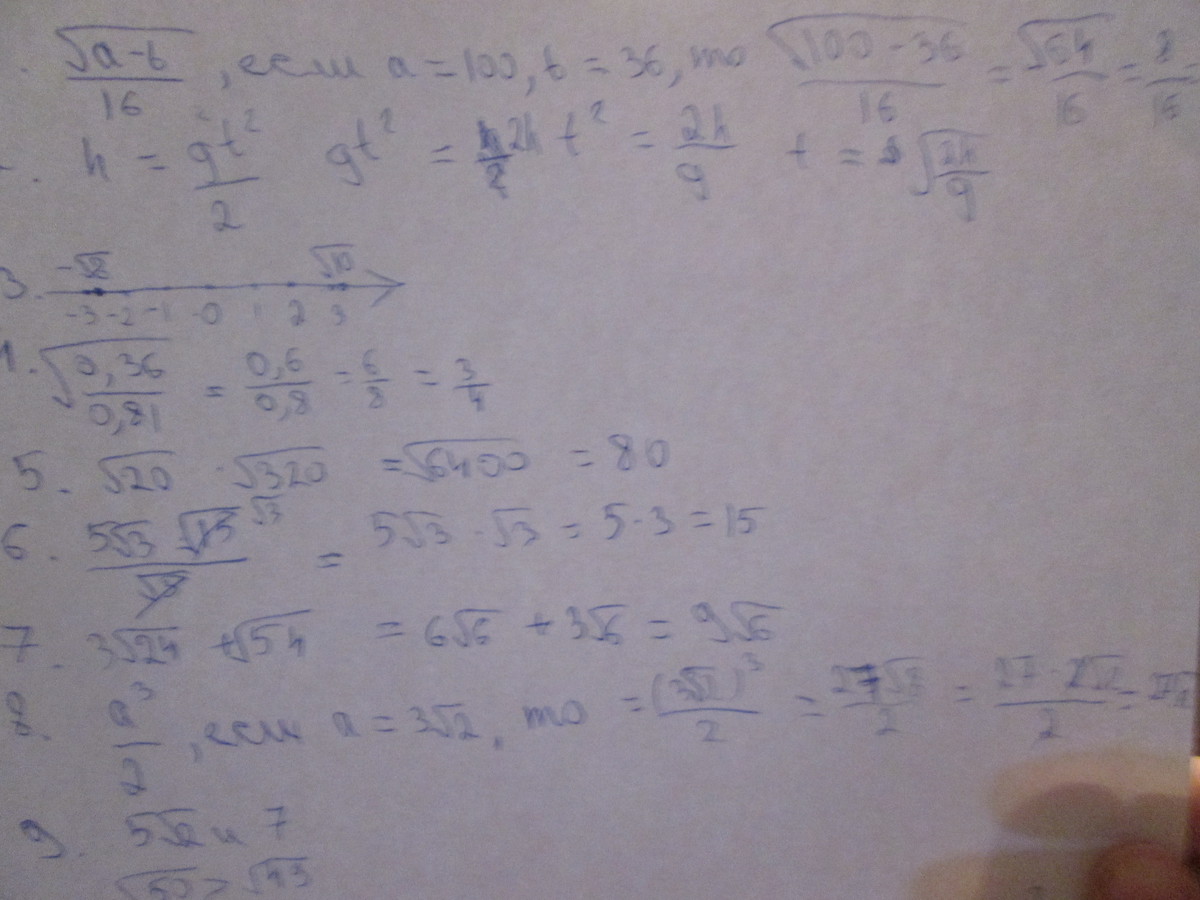 √(a-b)/16, если a = 100, b = 36, то √(100-36)/16 = √64/16 = 8/16 =
h = gt²/2 gt² = 2h t² = 2h/g t = √(2h/g)
3. -√8 √10
-3 -2 -1 -0 1 2 3
√(0,36/0,81) = 0,6/0,8 = 6/8 = 3/4
5. √20 · √320 = √6400 = 80
6. 5√3 √15 √3 / √5 = 5√3 · √3 = 5·3 = 15
7. 3√24 + √54 = 6√6 + 3√6 = 9√6
8. a³/2, если a = 3√2, то = (3√2)³/2 = 27√8/2 = 27·2√2/2 =
9. 5√2 и 7
√50 >